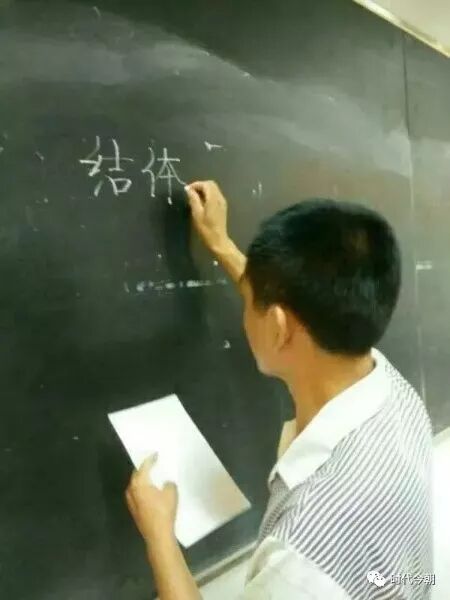 结体
时代今朝